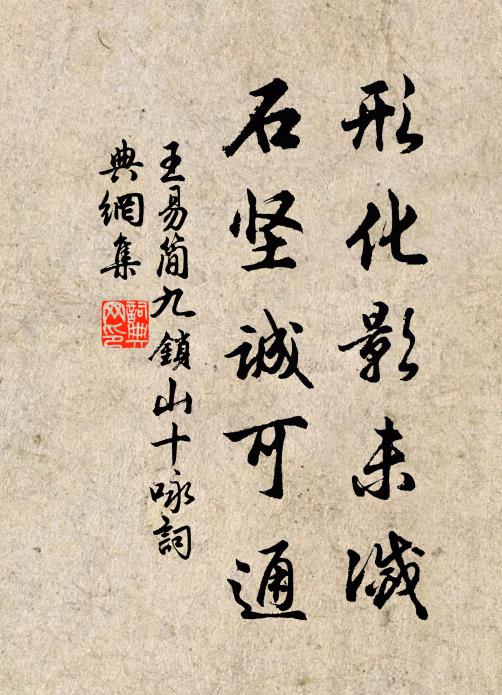 形化影未滅
石坚誠可通
王易简九鎖山十咏詞
典網集
詞典
网印